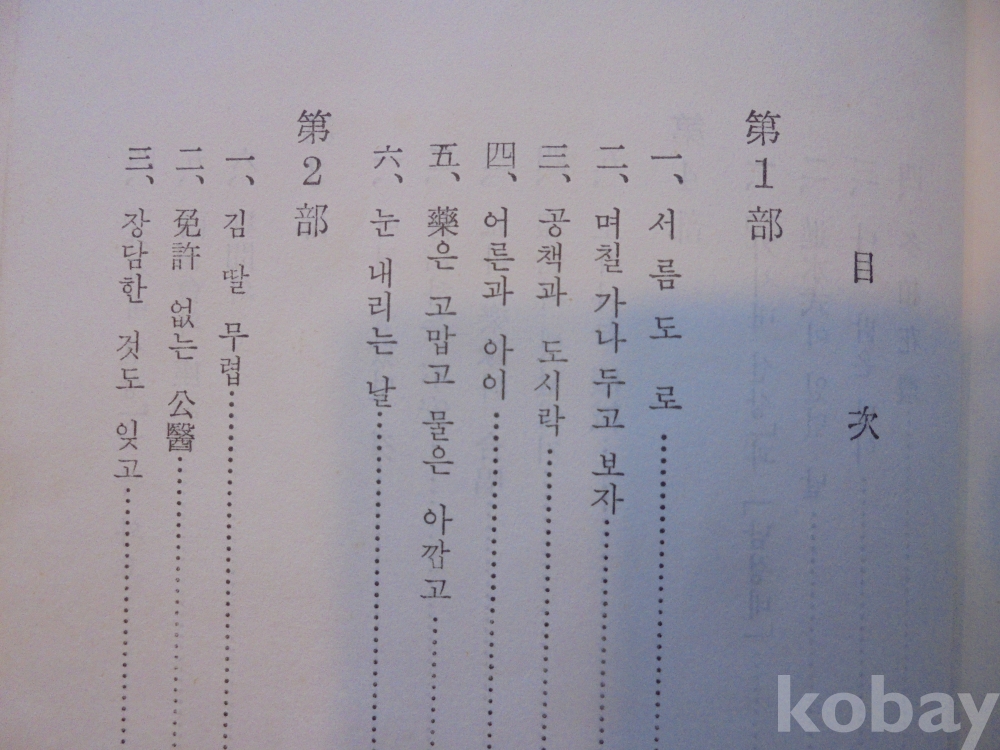 目 次
第1部
一、서름도로
二、며칠 가나 두고 보자
三、공책과 도시락
四、어른과 아이
五、藥은 고맙고 물은 아깝고
六、눈 내리는 날
第2部
一、김 딸 무렵
二、免許 없는 公醫
三、장담한 것도 잊고
kobay